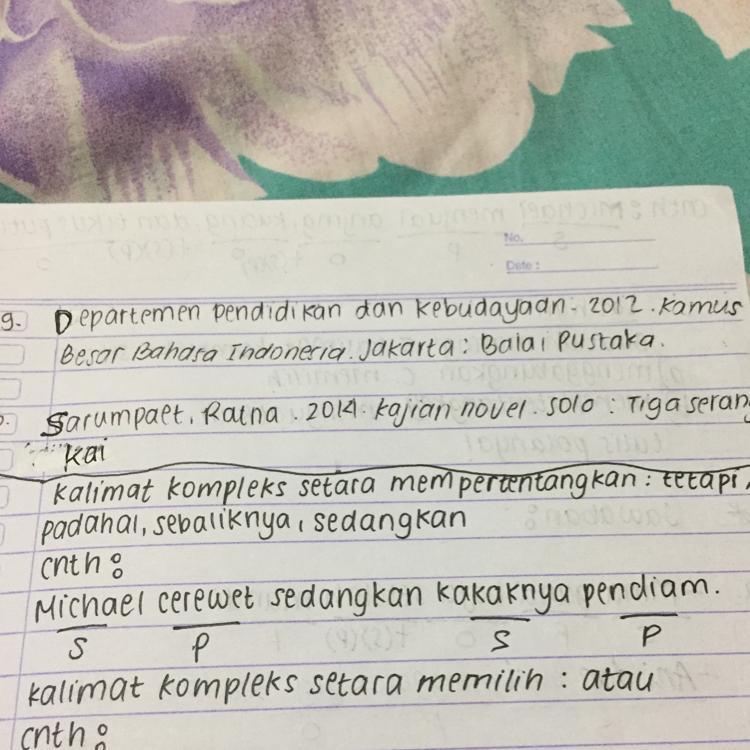 No.
Date :
g. Departemen pendidikan dan kebudayaan. 2012. Kamus
Besar Bahasa Indonesia. Jakarta : Balai Pustaka.
Sarumpaet, Ratna. 2014. Kajian novel. Solo : Tiga seran
kai
Kalimat kompleks setara mempertentangkan : tetapi,
padahal, sebaliknya, sedangkan
cnth :
Michael cerewet sedangkan kakaknya pendiam.
S P S P
Kalimat kompleks setara memilih : atau
cnth :